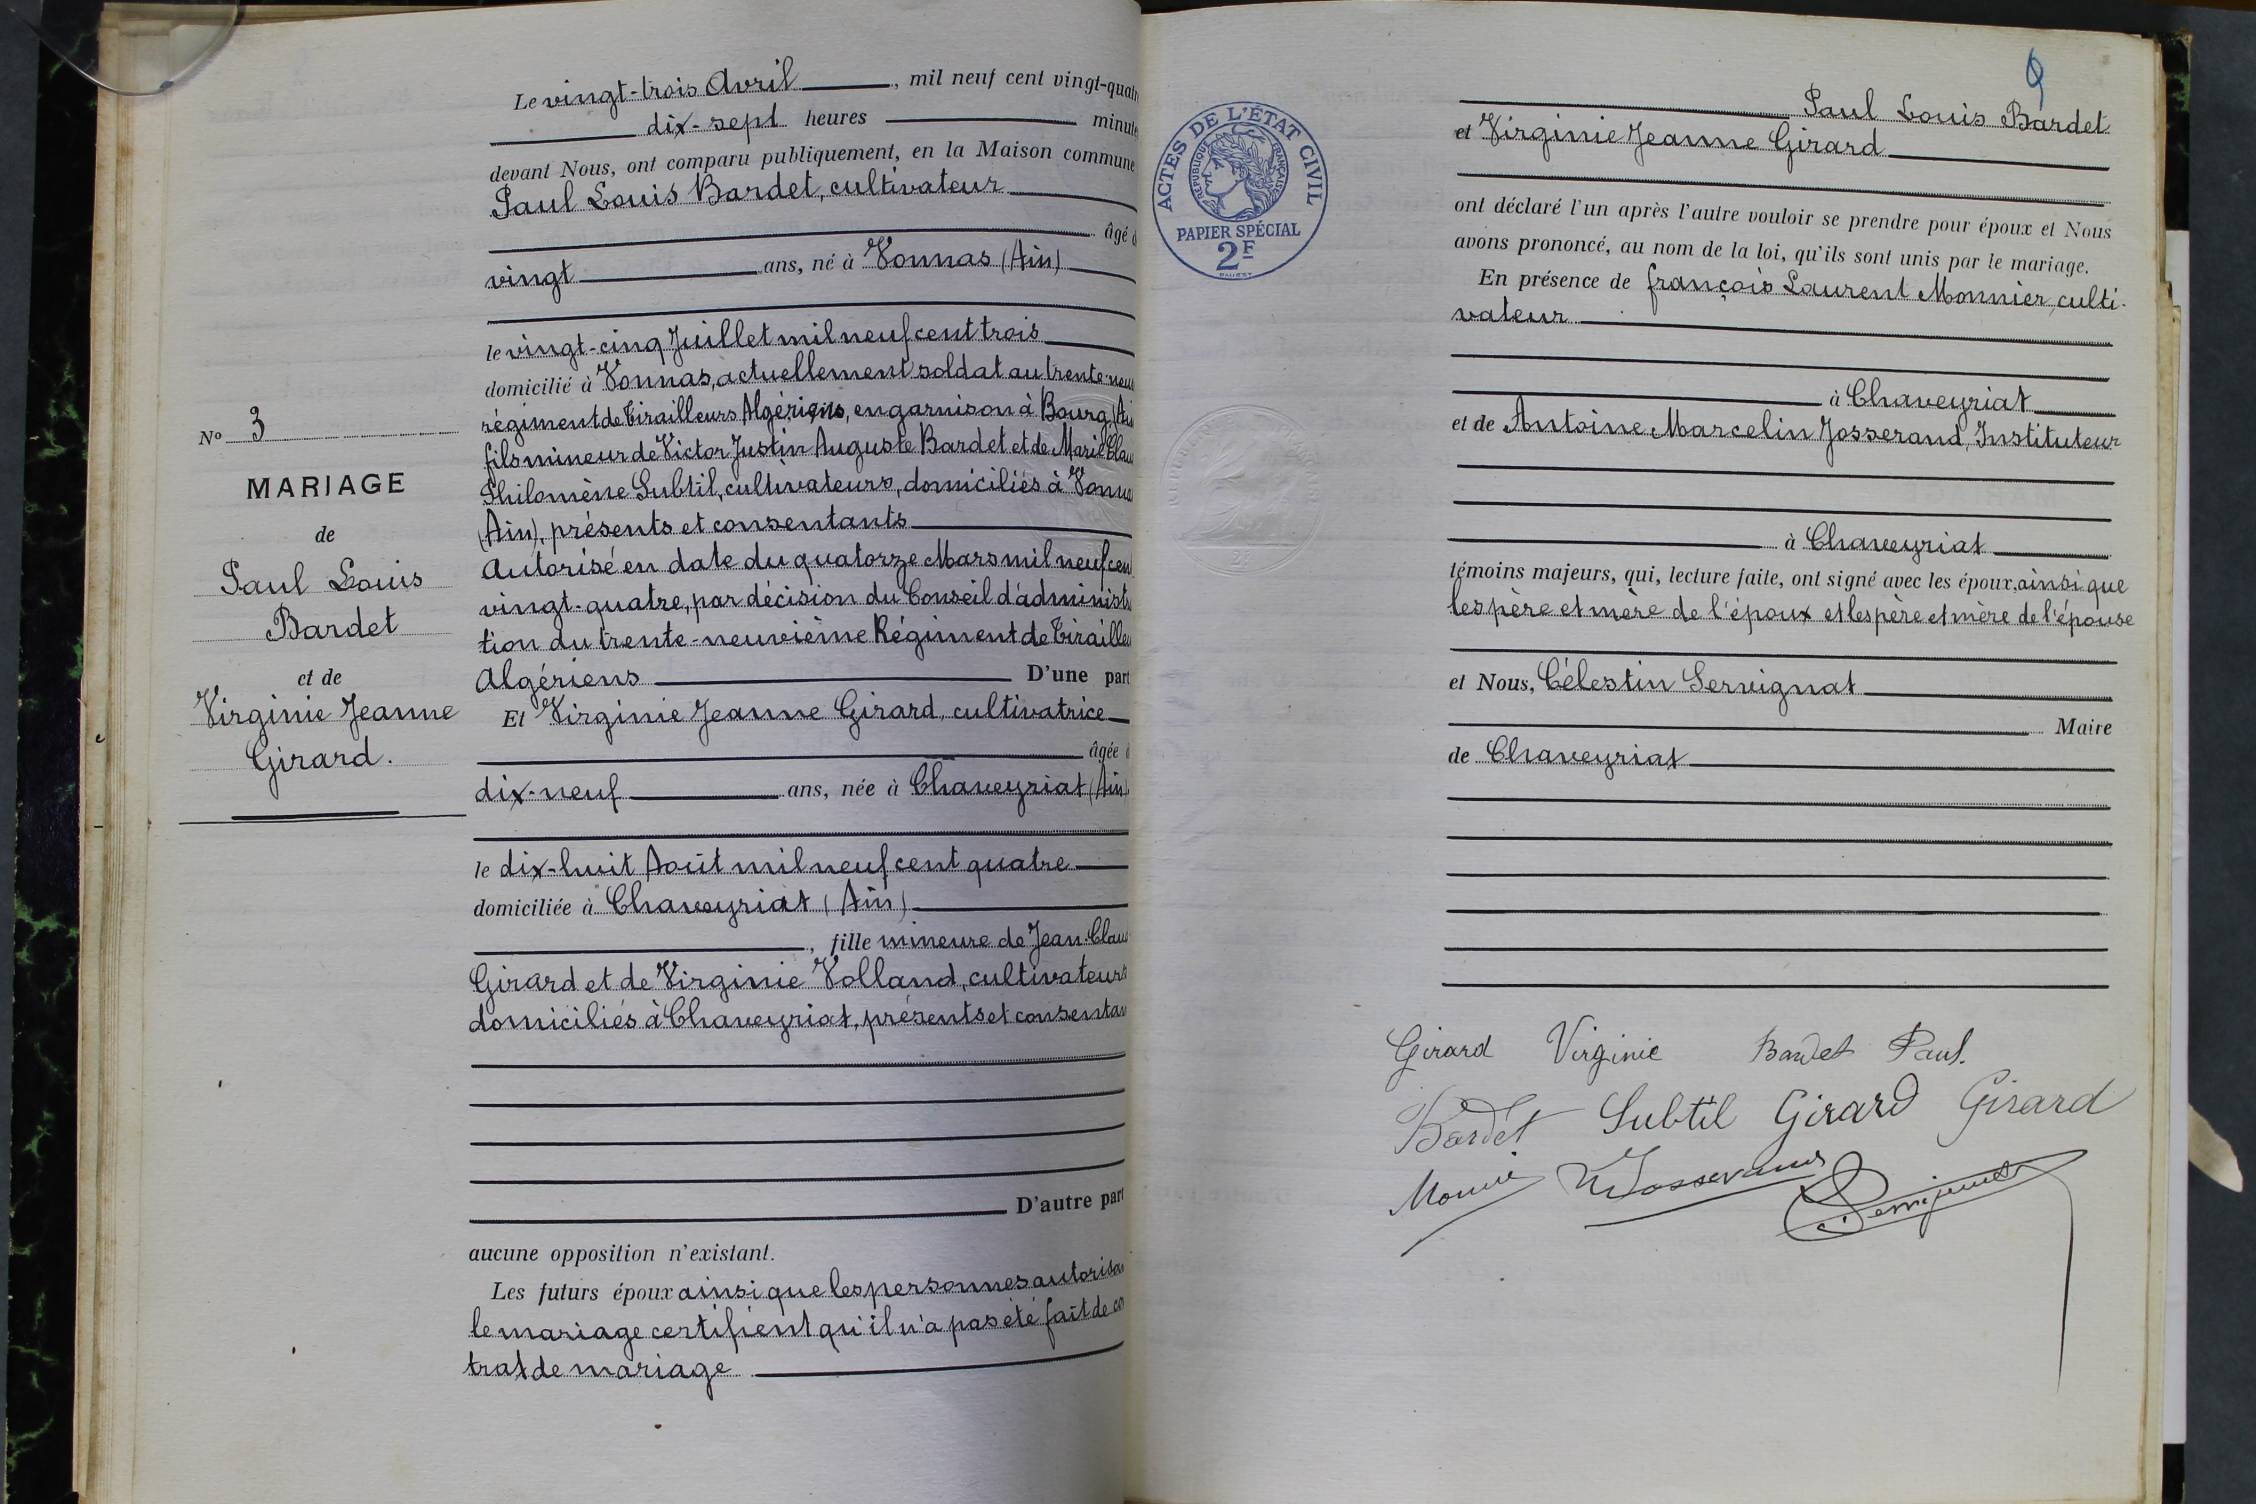 N° 3
MARIAGE
de
Paul Louis
Bardet
et de
Virginie Jeanne
Girard.
Le vingt-trois Avril, mil neuf cent vingt-quatr
dix-sept heures minute
devant Nous, ont comparu publiquement, en la Maison commune
Paul Louis Bardet, cultivateur
âgé d
vingt ans, né à Vonnas (Ain)
le vingt-cinq Juillet mil neuf cent trois
domicilié à Vonnas, actuellement soldat au trente-neuv
régiment de Tirailleurs Algériens, en garnison à Bourg (Ai
fils mineur de Victor Justin Auguste Bardet et de Marie Clau
Philomène Subtil, cultivateurs, domiciliés à Vonna
(Ain), présents et consentants
Autorisé en date du quatorze Mars mil neuf cen
vingt-quatre, par décision du Conseil d'administr
tion du trente-neuvième Régiment de Tiraille
Algériens D'une part
Et Virginie Jeanne Girard, cultivatrice
âgée d
dix-neuf ans, née à Chaveyriat (Ain)
le dix-huit Août mil neuf cent quatre
domiciliée à Chaveyriat (Ain)
, fille mineure de Jean-Clau
Girard et de Virginie Volland, cultivateurs
domiciliés à Chaveyriat, présents et consentan
D'autre part
aucune opposition n'existant.
Les futurs époux ainsi que les personnes autorisan
le mariage certifient qu'il n'a pas été fait de con
trat de mariage
ACTES DE L'ÉTAT CIVIL
RÉPUBLIQUE FRANÇAISE
PAPIER SPÉCIAL
2F
9
Paul Louis Bardet
et Virginie Jeanne Girard
ont déclaré l'un après l'autre vouloir se prendre pour époux et Nous
avons prononcé, au nom de la loi, qu'ils sont unis par le mariage.
En présence de françois Laurent Monnier, culti-
vateur
à Chaveyriat
et de Antoine Marcelin Josserand, Instituteur
à Chaveyriat
témoins majeurs, qui, lecture faite, ont signé avec les époux, ainsi que
les père et mère de l'époux et les père et mère de l'épouse
et Nous, Célestin Servignat
Maire
de Chaveyriat
Girard Virginie Bardet Paul.
Bardet Subtil Girard Girard
Monnié Josserand